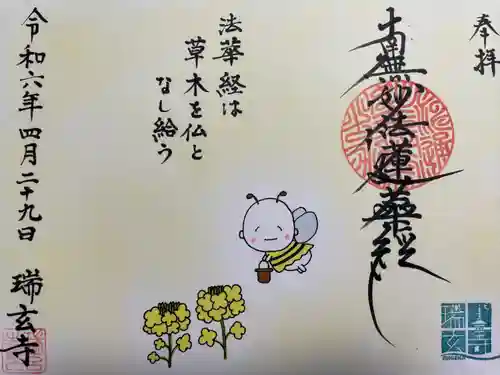 奉拝
南無妙法蓮華経
法華経は
草木を仏と
なし給う
令和六年四月二十九日
瑞玄寺
瑞玄